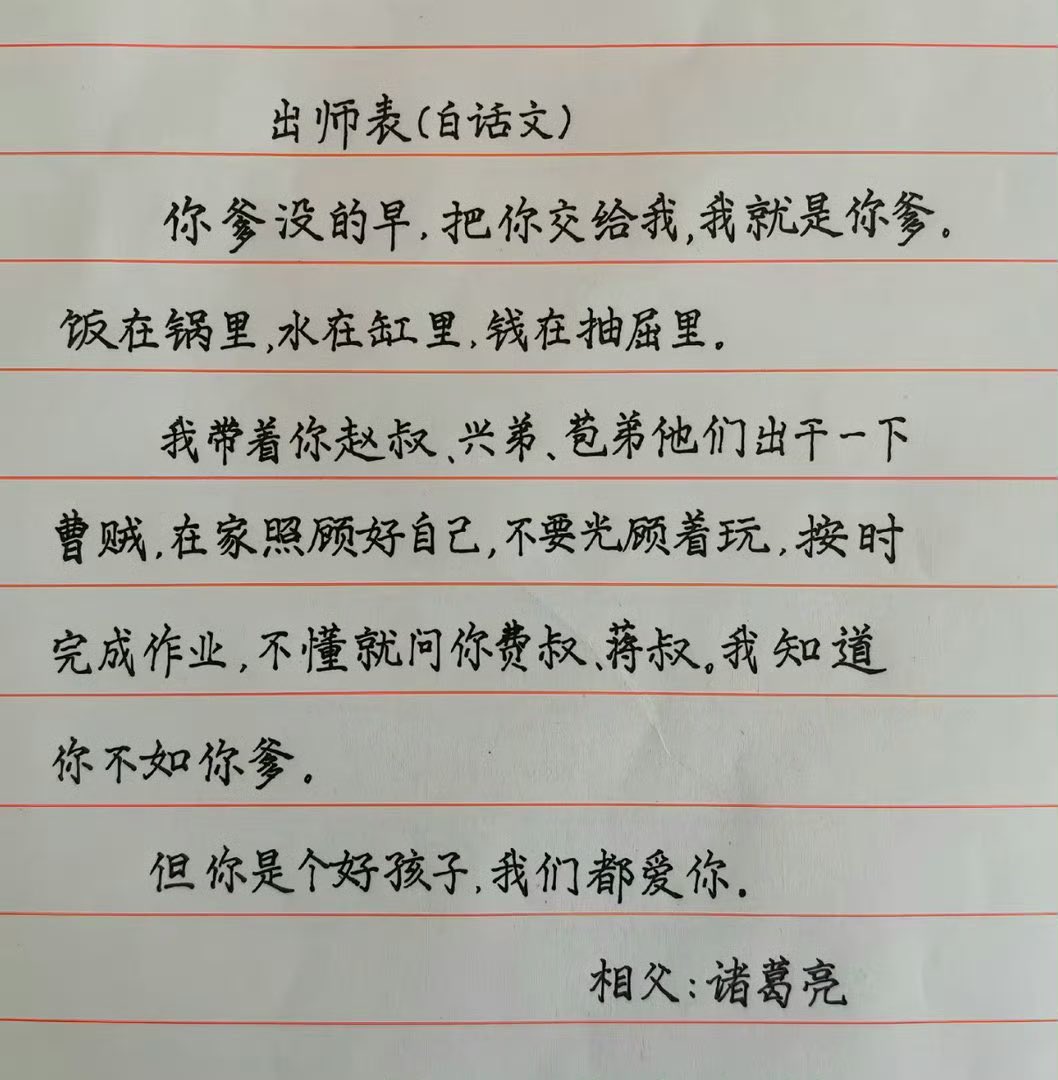 出师表(白话文)
你爹没的早,把你交给我,我就是你爹。
饭在锅里,水在缸里,钱在抽屉里。
我带着你赵叔、兴弟、苞弟他们出干一下
曹贼,在家照顾好自己,不要光顾着玩,按时
完成作业,不懂就问你费叔、蒋叔。我知道
你不如你爹。
但你是个好孩子,我们都爱你。
相父:诸葛亮